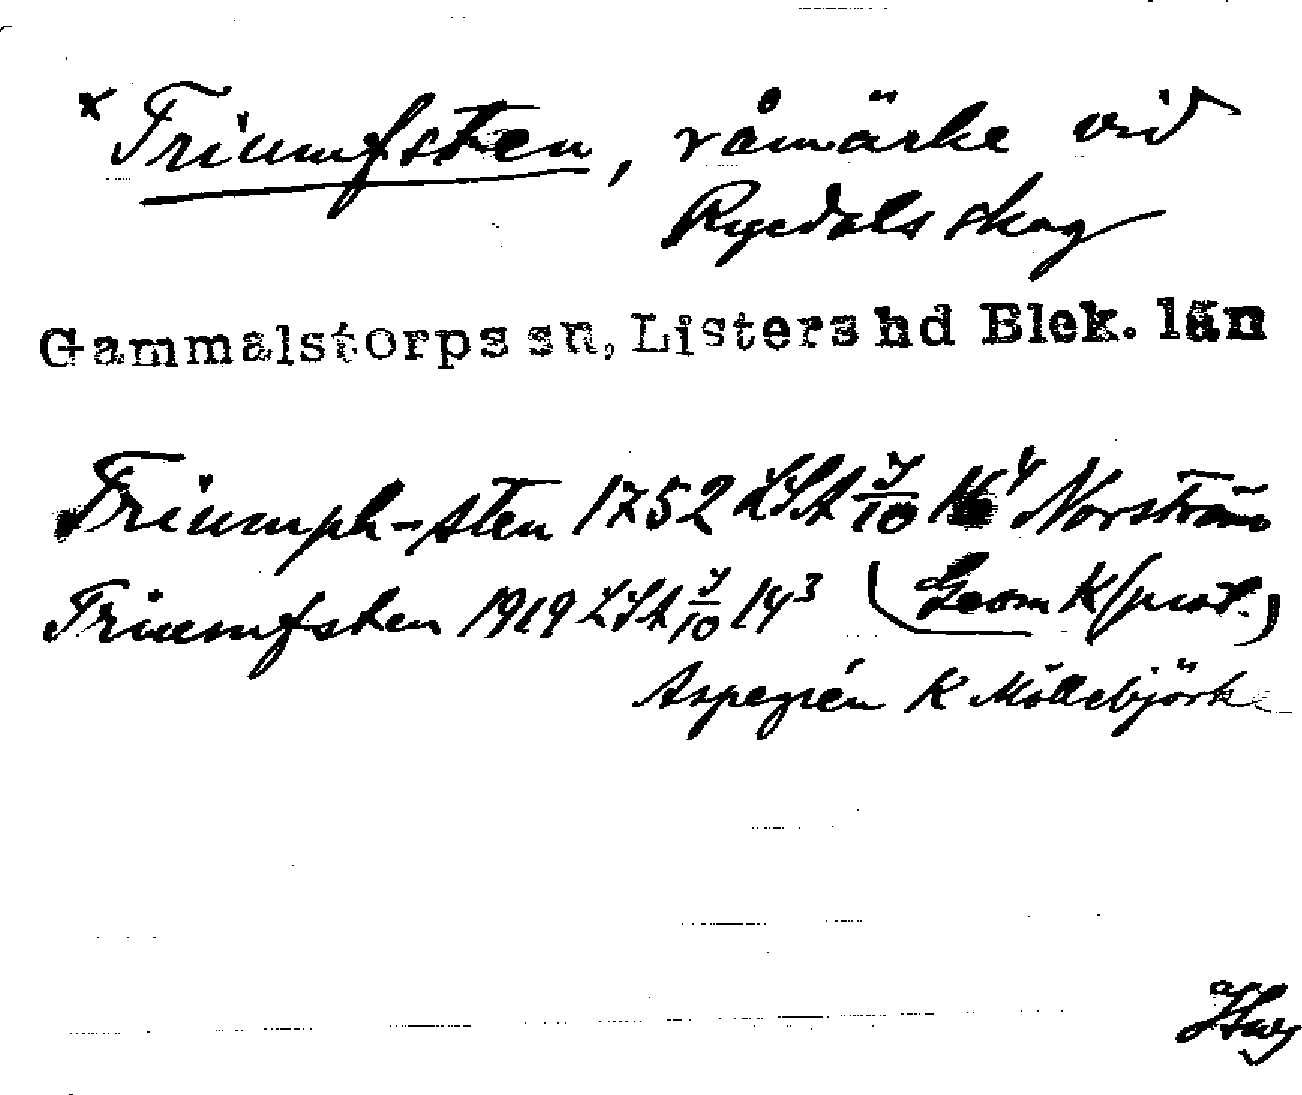 x Triumfsten, råmärke vid
Ryedals skog
Gammalstorps sn, Listers hd Blek. län
Triumph-sten 1752 LSA 7/10 16⁴ Norström
Triumfsten 1919 LSA 7/10 14³ (Geom K/prot.)
Aspegrén K Möllebjörke